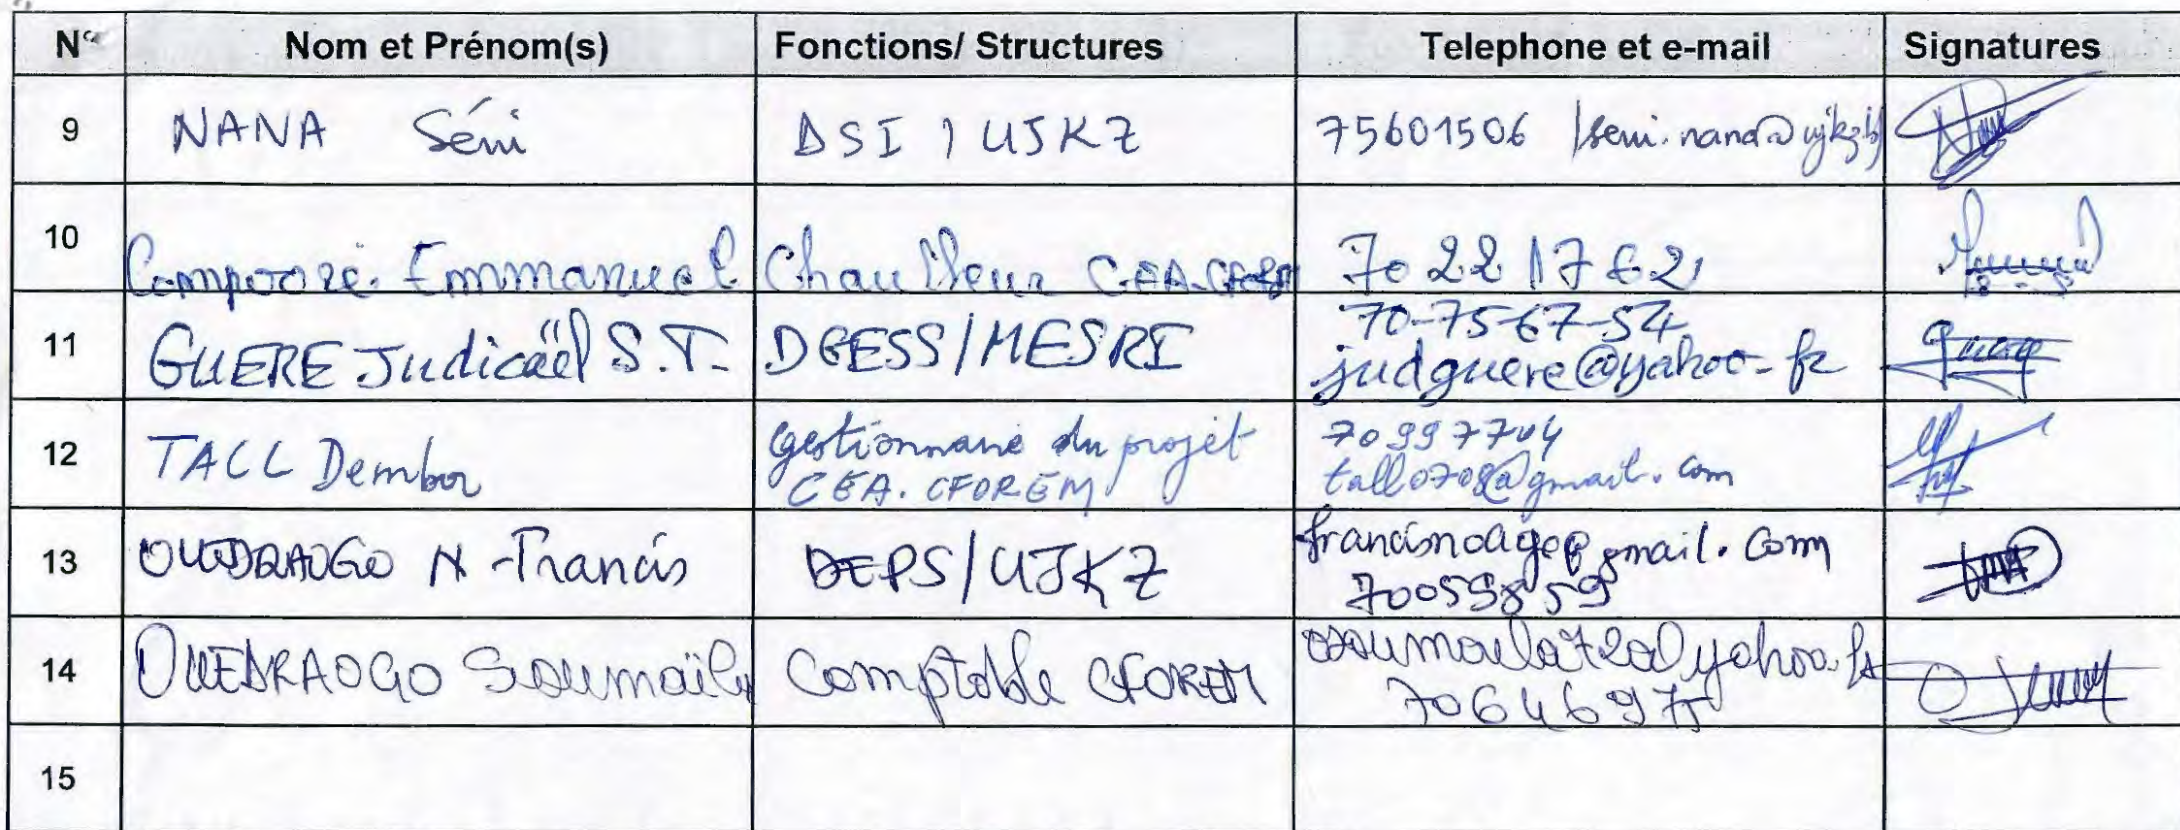 N° Nom et Prénom(s) Fonctions/ Structures Telephone et e-mail Signatures
9 NANA Séni DSI / UJKZ 75601506 /seni.nana@ujkz.bf
10 Compaoré Emmanuel Chauffeur CEA-CFOREM 70 22 17 62
11 GUERE Judicaël S.T. DGESS/MESRI 70-75-67-54
judguere@yahoo.fr
12 TALL Demba gestionnaire du projet 70997704
CEA.CFOREM tall0708@gmail.com
13 OUEDRAOGO N-Francis DEPS/UJKZ francisnoage@gmail.com
70059859
14 OUEDRAOGO Soumaïla Comptable CFOREM osoumaila72@yahoo.fr
70646975
15